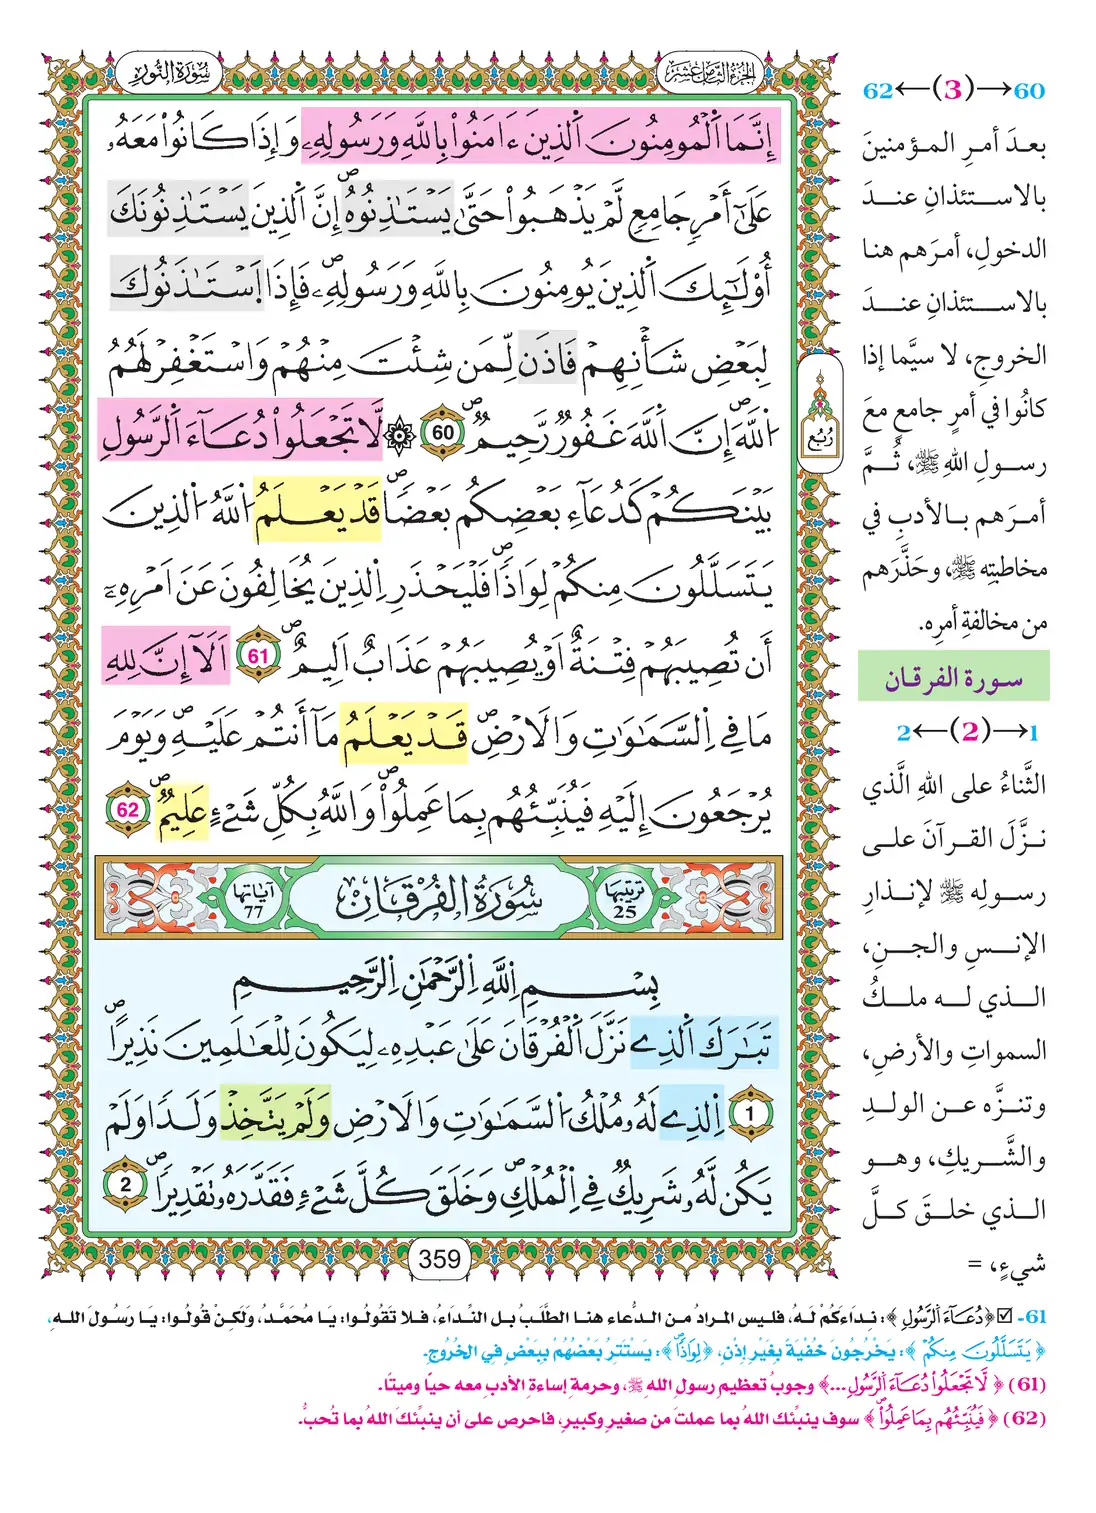 سُورَةُ النُّورِ
الجُزْءُ الثَّامِنَ عَشَرَ
إِنَّمَا اَ۬لْمُومِنُونَ اَ۬لذِينَ ءَامَنُواْ بِاللَّهِ وَرَسُولِهِۦ وَإِذَا كَانُواْ مَعَهُۥ
عَلَىٰٓ أَمْرٖ جَامِعٖ لَّمْ يَذْهَبُواْ حَتَّىٰ يَسْتَٰذِنُوهُۖ إِنَّ اَ۬لذِينَ يَسْتَٰذِنُونَكَ
أُوْلَٰٓئِكَ اَ۬لذِينَ يُومِنُونَ بِاللَّهِ وَرَسُولِهِۦۖ فَإِذَا اَ۪سْتَٰذَنُوكَ
لِبَعْضِ شَأْنِهِمْ فَاذَن لِّمَن شِئْتَ مِنْهُمْ وَاسْتَغْفِرْ لَهُمُ
اُ۬للَّهَۖ إِنَّ اَ۬للَّهَ غَفُورٞ رَّحِيمٞۖ 60 ۞ لَّا تَجْعَلُواْ دُعَآءَ اَ۬لرَّسُولِ
بَيْنَكُمْ كَدُعَآءِ بَعْضِكُم بَعْضاٗۖ قَدْ يَعْلَمُ اُ۬للَّهُ اُ۬لذِينَ
يَتَسَلَّلُونَ مِنكُمْ لِوَاذاٗۖ فَلْيَحْذَرِ اِ۬لذِينَ يُخَالِفُونَ عَنَ اَمْرِهِۦٓ
أَن تُصِيبَهُمْ فِتْنَةٌ اَوْ يُصِيبَهُمْ عَذَابٌ اَلِيمٌۖ 61 اَلَآ إِنَّ لِلهِ
مَا فِي اِ۬لسَّمَٰوَٰتِ وَالَارْضِۖ قَدْ يَعْلَمُ مَآ أَنتُمْ عَلَيْهِۖ وَيَوْمَ
يُرْجَعُونَ إِلَيْهِ فَيُنَبِّئُهُم بِمَا عَمِلُواْۖ وَاللَّهُ بِكُلِّ شَےْءٍ عَلِيمٞۖ 62
ترتيبها 25
سُورَةُ الفُرْقَانِ
آياتها 77
بِسْمِ اِ۬للَّهِ اِ۬لرَّحْمَٰنِ اِ۬لرَّحِيمِ
تَبَٰرَكَ اَ۬لذِے نَزَّلَ اَ۬لْفُرْقَانَ عَلَىٰ عَبْدِهِۦ لِيَكُونَ لِلْعَٰلَمِينَ نَذِيراًۖ
1 اِ۬لذِے لَهُۥ مُلْكُ اُ۬لسَّمَٰوَٰتِ وَالَارْضِ وَلَمْ يَتَّخِذْ وَلَداٗ وَلَمْ
يَكُن لَّهُۥ شَرِيكٞ فِي اِ۬لْمُلْكِۖ وَخَلَقَ كُلَّ شَےْءٖ فَقَدَّرَهُۥ تَقْدِيراٗۖ 2
359
رُبُع
60→(3)←62
بعدَ أمرِ المؤمنينَ
بالاستئذانِ عندَ
الدخولِ، أمرَهم هنا
بالاستئذانِ عندَ
الخروجِ، لا سيَّما إذا
كانُوا في أمرٍ جامعٍ معَ
رسولِ اللهِ ﷺ، ثُمَّ
أمرَهم بالأدبِ في
مخاطبتِه ﷺ، وحَذَّرَهم
من مخالفةِ أمرِه.
سورة الفرقان
1→(2)←2
الثَّناءُ على اللهِ الَّذي
نزَّلَ القرآنَ على
رسولِه ﷺ لإنذارِ
الإنسِ والجنِ،
الذي له ملكُ
السمواتِ والأرضِ،
وتنزَّه عن الولدِ
والشَّريكِ، وهو
الذي خلقَ كلَّ
شيءٍ، =
61- ☑ ﴿دُعَآءَ اَ۬لرَّسُولِ﴾: نِدَاءَكُمْ لَهُ، فليس المرادُ من الدُّعاء هنا الطَّلَبُ بل النِّداءُ، فلا تَقُولُوا: يَا مُحَمَّدُ، وَلَكِنْ قُولُوا: يَا رَسُولَ اللهِ،
﴿يَتَسَلَّلُونَ مِنكُمْ﴾: يَخْرُجُونَ خُفْيَةً بِغَيْرِ إِذْنٍ، ﴿لِوَاذاٗۖ﴾: يَسْتَتِرُ بَعْضُهُمْ بِبَعْضٍ فِي الخُرُوجِ.
(61) ﴿لَّا تَجْعَلُواْ دُعَآءَ اَ۬لرَّسُولِ...﴾ وجوبُ تعظيمِ رسولِ اللهِ ﷺ، وحرمةِ إساءةِ الأدبِ معه حياً وميتاً.
(62) ﴿فَيُنَبِّئُهُم بِمَا عَمِلُواْۖ﴾ سوف ينبِّئك اللهُ بما عملتَ من صغيرٍ وكبيرٍ، فاحرص على أن ينبِّئكَ اللهُ بما تُحبُّ.